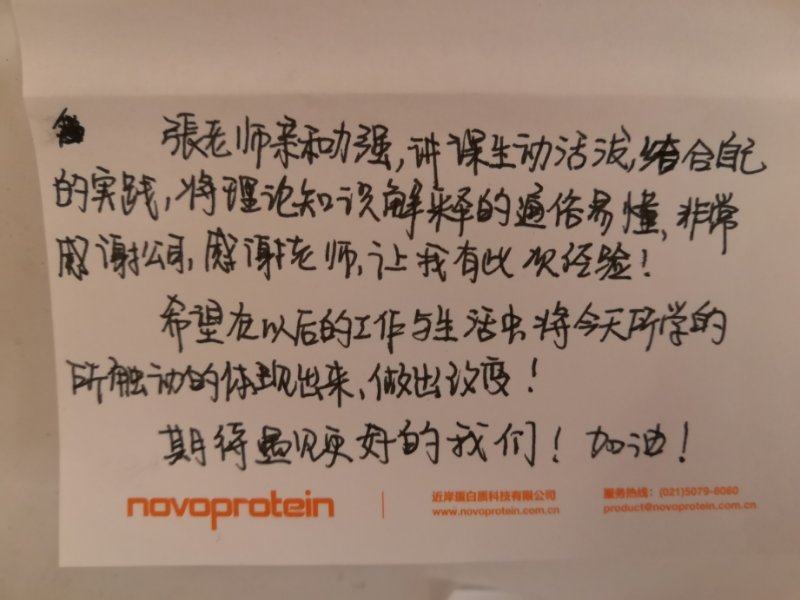 張老师亲和力强,讲课生动活泼,结合自己
的实践,将理论知识解释的通俗易懂,非常
感谢公司,感谢老师,让我有此次经验!
希望在以后的工作与生活中将今天所学的
所触动的体现出来、做出改变!
期待遇见更好的我们!加油!
novoprotein
近岸蛋白质科技有限公司 服务热线:(021)5079-6060
www.novoprotein.com.cn product@novoprotein.com.cn